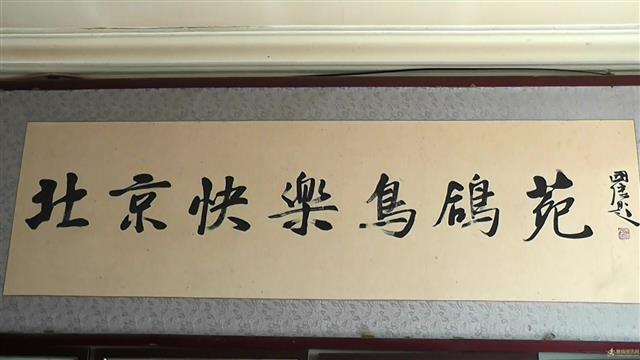 北京快樂鳥鴿苑